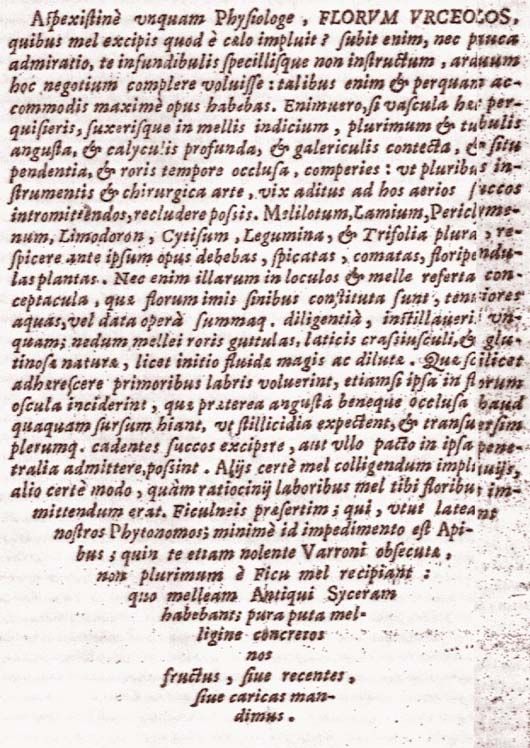 Aspexistinè vnquam Physiologe, FLORVM VRCEOLOS,
quibus mel excipis quod è cælo impluit? subit enim, nec pauca
admiratio, te infundibulis specillisque non instructum, arduum
hoc negotium complere voluisse: talibus enim & perquam ac-
commodis maximè opus habebas. Enimuero, si vascula hæc per-
quisieris, suxerisque in mellis indicium, plurimum & tubulis
angusta, & calyculis profunda, & galericulis contecta, & situ
pendentia, & roris tempore occlusa, comperies: vt pluribus in-
strumentis & chirurgica arte, vix aditus ad hos aerios succos
intromittendos, recludere possis. Melilotum, Lamium, Periclyme-
num, Limodoron, Cytisum, Legumina, & Trifolia plura, re-
spicere ante ipsum opus debebas, spicatas, comatas, floripendu-
las plantas. Nec enim illarum in loculos & melle referta con-
ceptacula, quæ florum imis sinibus constituta sunt, tenuiores
aquas, vel data operâ summaq. diligentiâ, instillaueris vn-
quam; nedum mellei roris guttulas, laticis crassiusculi, & glu-
tinosæ naturæ, licet initio fluidæ magis ac dilutæ. Quæ scilicet
adhærescere primoribus labris voluerint, etiamsi ipsa in florum
oscula inciderint, quæ præterea angusta beneque occlusa haud
quaquam sursum hiant, vt stillicidia expectent, & transuersim
plerumq. cadentes succos excipere, aut vllo pacto in ipsa pene-
tralia admittere, possint. Alijs certè mel colligendum impluuijs,
alio certè modo, quàm ratiocinij laboribus mel tibi floribus im-
mittendum erat. Ficulneis præsertim; qui, vtut lateant
nostros Phytonomos; minimè id impedimento est Api-
bus; quin te etiam nolente Varroni obsecutæ,
non plurimum è Ficu mel recipiant:
quo melleam Antiqui Syceram
habebant; pura puta mel-
ligine concretos
nos
fructus, siue recentes,
siue caricas man-
dimus.